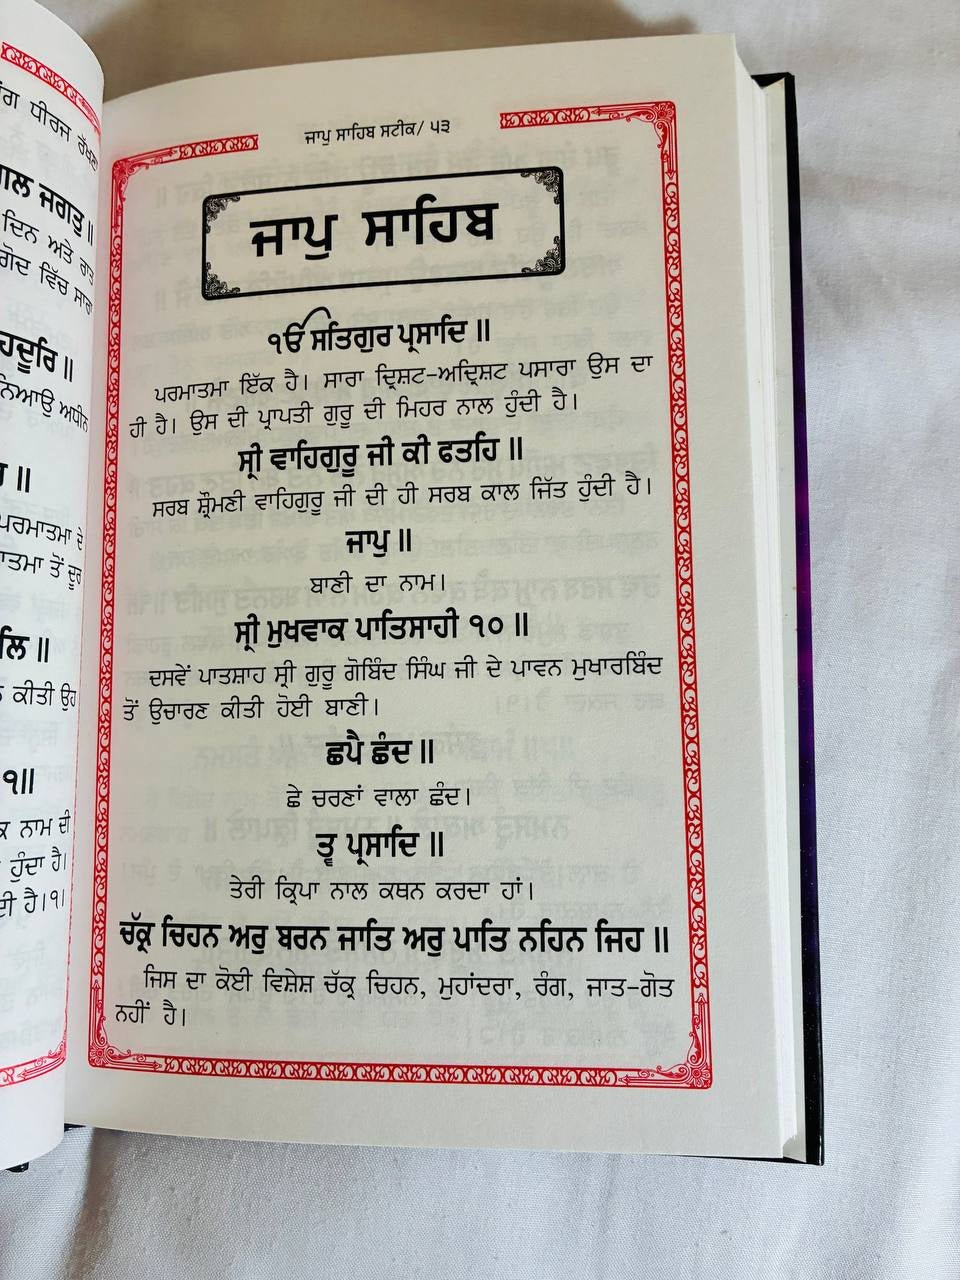 ਧੀਰਜ ਰੱਖਣਾ
ਜਗਤੁ॥
ਦਿਨ ਅਤੇ ਰਾਤ
ਗੋਦ ਵਿੱਚ ਸਾਰਾ
ਹਦੂਰਿ॥
ਨਿਆਉ ਅਧੀਨ
ਪਰਮਾਤਮਾ ਦੇ
ਤੋਂ ਦੂਰ
ਲਿ॥
ਕੀਤੀ ਉਹ
੧॥
ਨਾਮ ਦੀ
ਹੁੰਦਾ ਹੈ।
ਹੈ।੧।
ਜਾਪੁ ਸਾਹਿਬ ਸਟੀਕ/ ੫੩
ਜਾਪੁ ਸਾਹਿਬ
ੴ ਸਤਿਗੁਰ ਪ੍ਰਸਾਦਿ॥
ਪਰਮਾਤਮਾ ਇੱਕ ਹੈ। ਸਾਰਾ ਦ੍ਰਿਸ਼ਟ-ਅਦ੍ਰਿਸ਼ਟ ਪਸਾਰਾ ਉਸ ਦਾ
ਹੀ ਹੈ। ਉਸ ਦੀ ਪ੍ਰਾਪਤੀ ਗੁਰੂ ਦੀ ਮਿਹਰ ਨਾਲ ਹੁੰਦੀ ਹੈ।
ਸ੍ਰੀ ਵਾਹਿਗੁਰੂ ਜੀ ਕੀ ਫਤਹਿ॥
ਸਰਬ ਸ਼੍ਰੋਮਣੀ ਵਾਹਿਗੁਰੂ ਜੀ ਦੀ ਹੀ ਸਰਬ ਕਾਲ ਜਿੱਤ ਹੁੰਦੀ ਹੈ।
ਜਾਪੁ॥
ਬਾਣੀ ਦਾ ਨਾਮ।
ਸ੍ਰੀ ਮੁਖਵਾਕ ਪਾਤਿਸਾਹੀ ੧੦॥
ਦਸਵੇਂ ਪਾਤਸ਼ਾਹ ਸ੍ਰੀ ਗੁਰੂ ਗੋਬਿੰਦ ਸਿੰਘ ਜੀ ਦੇ ਪਾਵਨ ਮੁਖਾਰਬਿੰਦ
ਤੋਂ ਉਚਾਰਣ ਕੀਤੀ ਹੋਈ ਬਾਣੀ।
ਛਪੈ ਛੰਦ॥
ਛੇ ਚਰਣਾਂ ਵਾਲਾ ਛੰਦ।
ਤ੍ਵ ਪ੍ਰਸਾਦਿ॥
ਤੇਰੀ ਕ੍ਰਿਪਾ ਨਾਲ ਕਥਨ ਕਰਦਾ ਹਾਂ।
ਚੱਕ੍ਰ ਚਿਹਨ ਅਰੁ ਬਰਨ ਜਾਤਿ ਅਰੁ ਪਾਤਿ ਨਹਿਨ ਜਿਹ॥
ਜਿਸ ਦਾ ਕੋਈ ਵਿਸ਼ੇਸ਼ ਚੱਕ੍ਰ ਚਿਹਨ, ਮੁਹਾਂਦਰਾ, ਰੰਗ, ਜਾਤ-ਗੋਤ
ਨਹੀਂ ਹੈ।